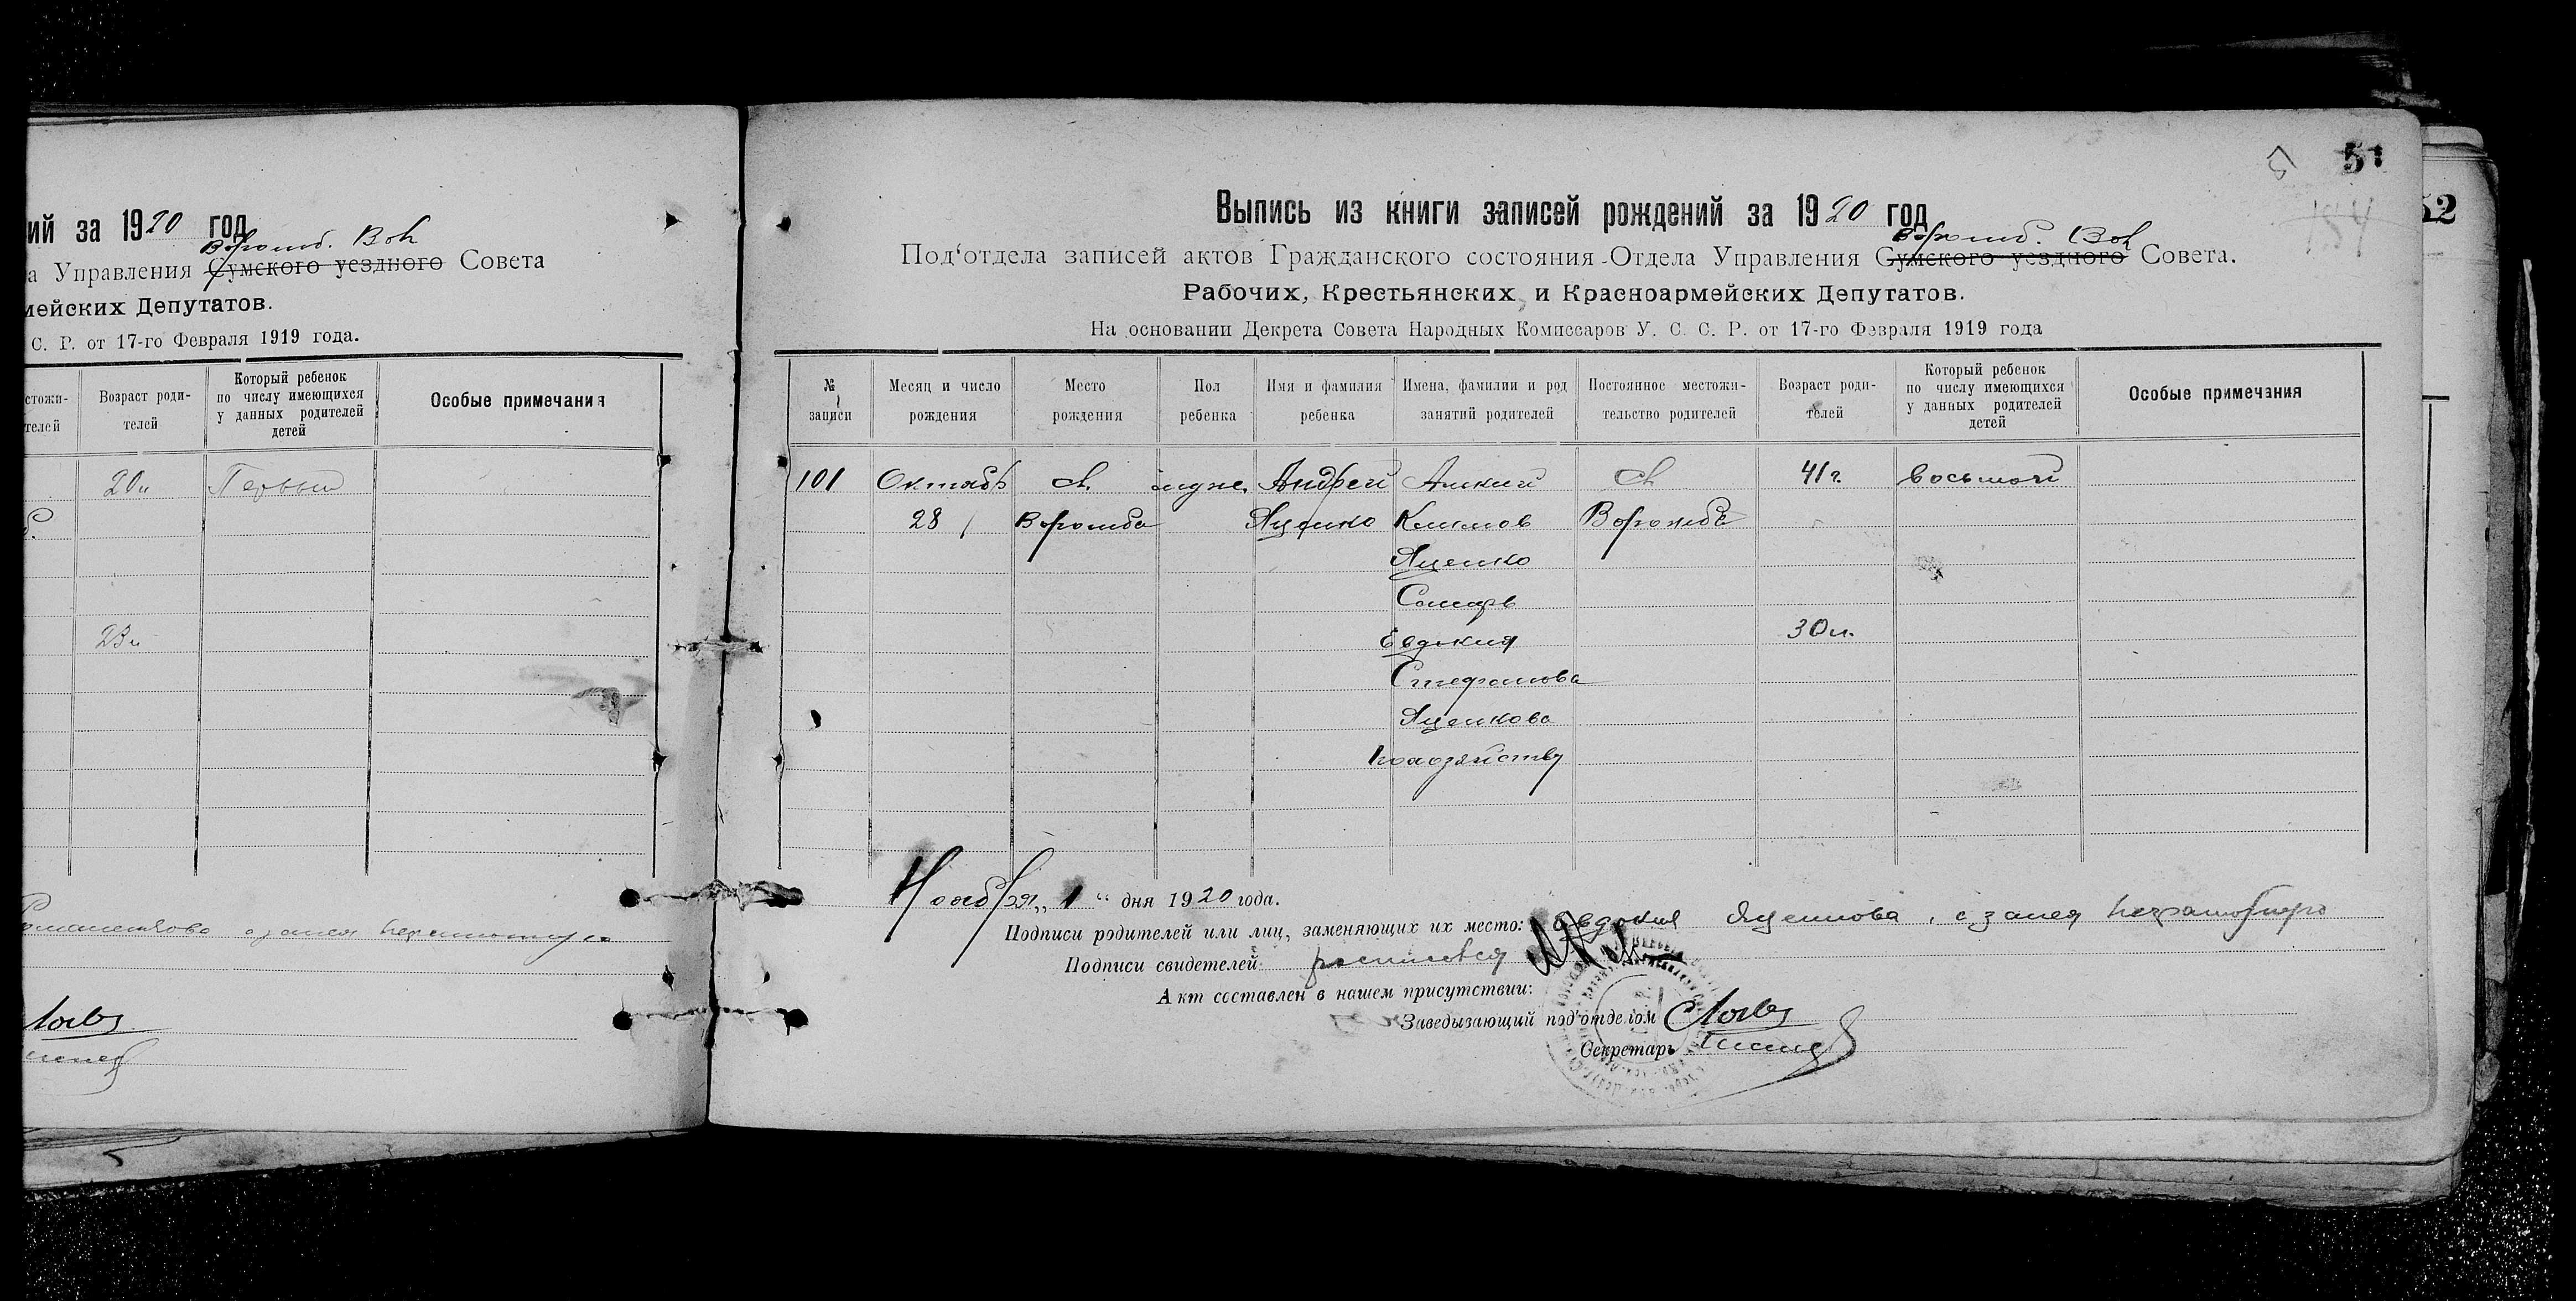 ий за 1920 год
Ворожб. Вол
а Управления Сумского уездного Совета
мейских Депутатов.
С. Р. от 17-го Февраля 1919 года.
стожи-
телей
Возраст роди-
телей
Который ребенок
по числу имеющихся
у данных родителей
детей
Особые примечания
20л Первый
23л
51
52
Выпись из книги записей рождений за 1920 год
Ворожб. Вол
Под‘отдела записей актов Гражданского состояния-Отдела Управления Сумского уездного Совета.
Рабочих, Крестьянских, и Красноармейских Депутатов.
На основании Декрета Совета Народных Комиссаров У. С. С. Р. от 17-го Февраля 1919 года
№
записи
Месяц и число
рождения
Место
рождения
Пол
ребенка
Имя и фамилия
ребенка
Имена, фамилии и род
занятий родителей
Постоянное местожи-
тельство родителей
Возраст роди-
телей
Который ребенок
по числу имеющихся
у данных родителей
детей
Особые примечания
101 Октябр с. муже. Андрей с. 41г. восьмой
28 Ворожба Яценко Климов Ворожба
Яценко
Евдокия 30л.
Стефанова
Яценкова
Ноября „ 1 “ дня 1920 года.
Подписи родителей или лиц, заменяющих их место: Евдокия Яценкова, а за нея неграмотную
Подписи свидетелей
Акт составлен в нашем присутствии:
Заведывающий под‘отделом
Секретарь